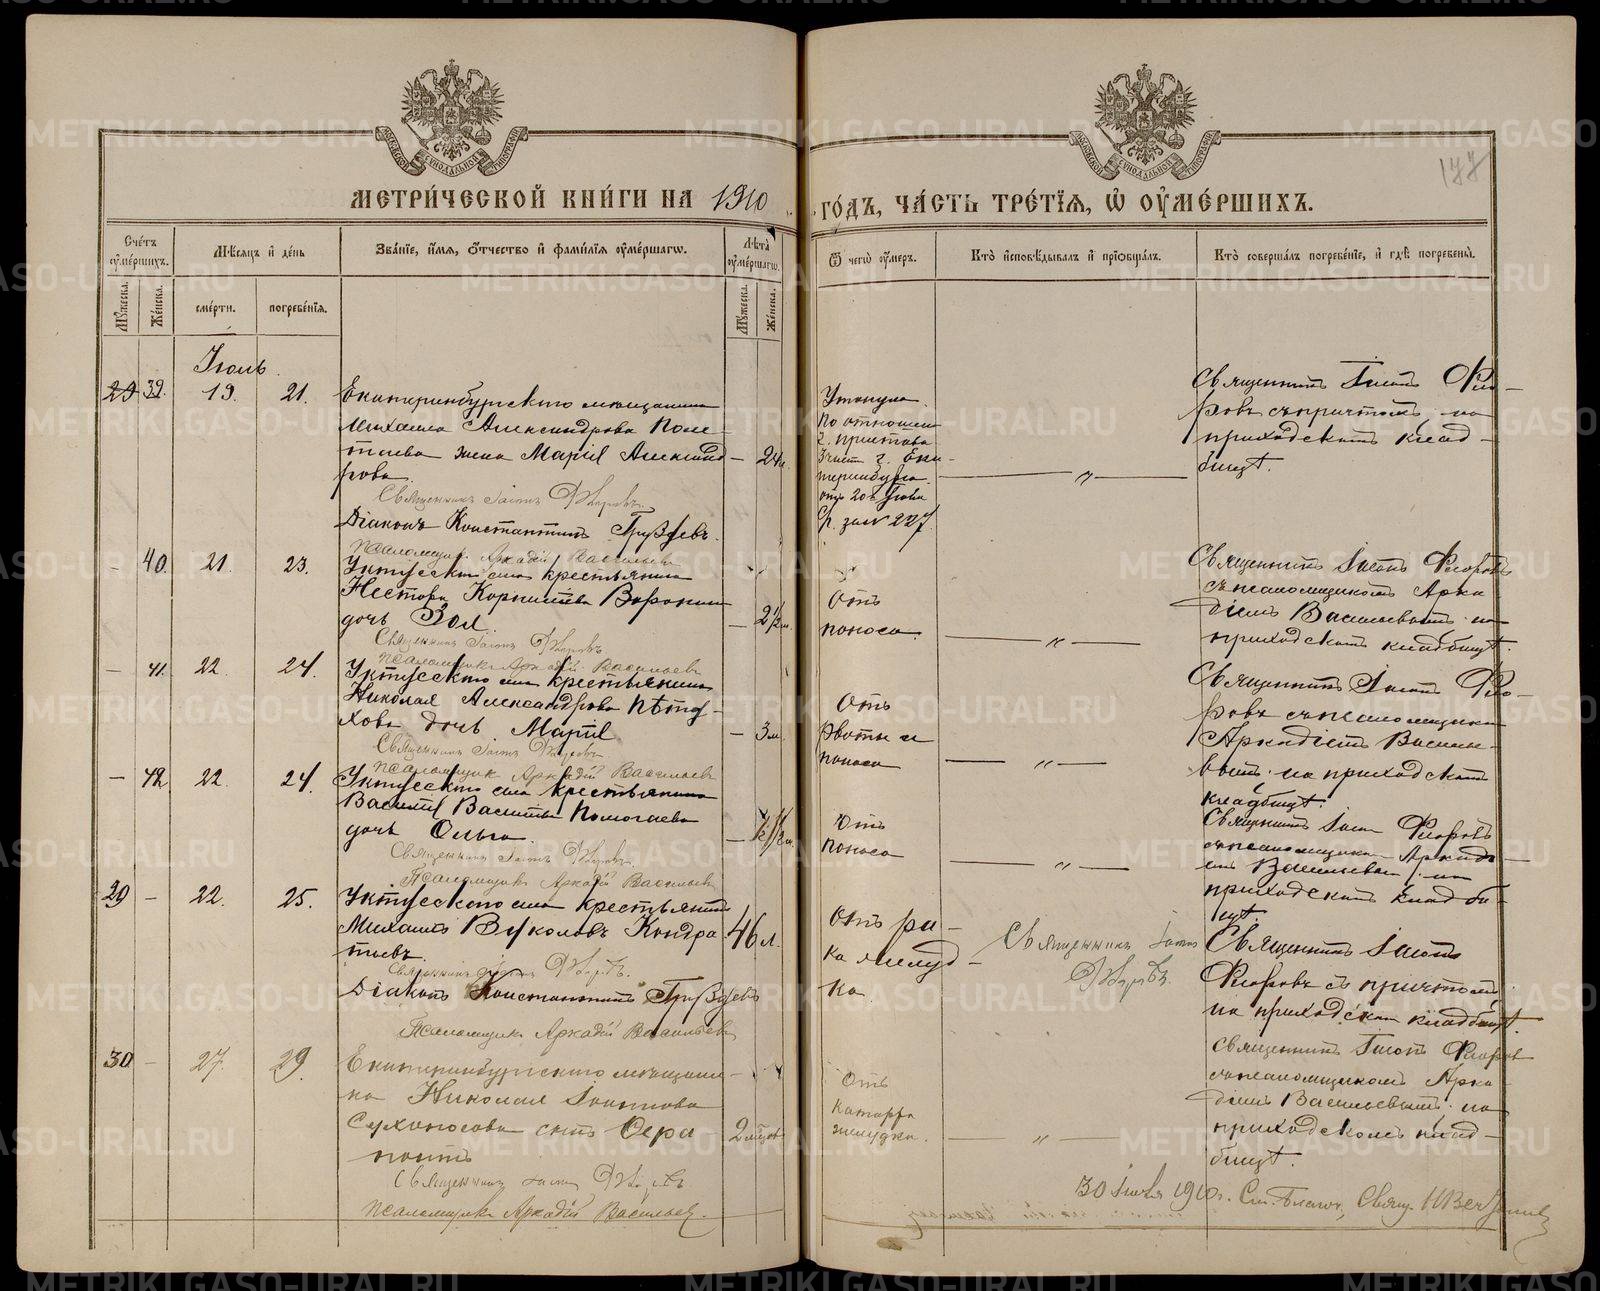 МЕТРИ́ЧЕСКОЙ КНИ́ГИ НА 1910
ГО́ДЪ, ЧА́СТЬ ТРЕ́ТЇѦ, Ѡ҆ ОУ҆МЕ́РШИХЪ.
177
Сче́тъ оу҆ме́ршихъ.
Мѣ́сѧцъ и҆ де́нь
Зва́нїе, и҆́мѧ, ѻ҆́тчество и҆ фами́лїѧ оу҆ме́ршагѡ.
Лѣ́та оу҆ме́ршагѡ.
Ѿ чегѡ̀ оу҆́меръ.
Кто̀ и҆сповѣ́дывалъ и҆ прїѡбща́лъ.
Кто̀ соверша́лъ погребе́нїе, и҆ гдѣ̀ погребены̀.
Мꙋ́жеска.
Же́нска.
сме́рти.
погребе́нїѧ.
Мꙋ́жеска.
Же́нска.
Іюль
29 39. 19. 21.
Екатеринбургскаго мѣщанина
Михаила Александрова Поле-
таева жена Марія Александ-
рова.
24 л.
Священникъ Іаковъ Флоровъ
Діаконъ Константинъ Груздевъ.
Псаломщик Аркадій Васильев
Утонула.
По отношен.
г. пристава
3 части г. Ека-
теринбурга
отъ 20 Іюля
за № 227
Священникъ Іаковъ Фло-
ровъ съ причтомъ на
приходскомъ клад-
бищѣ.
40. 21. 23.
Уктусскаго села крестьянина
Нестора Корнилова Воронин
дочь Зоя.
2½ м.
Священникъ Іаковъ Флоровъ
Псаломщикъ Аркадій Васильевъ
Отъ
поноса.
Священникъ Іаковъ Флоровъ
съ псаломщикомъ Арка-
діемъ Васильевымъ на
приходскомъ кладбищѣ.
41. 22. 24.
Уктусскаго села крестьянина
Николая Александрова Пѣту-
хова дочь Марія
3 м.
Священникъ Іаковъ Флоровъ
Псаломщик Аркадій Васильевъ
Отъ
рвоты и
поноса
Священникъ Іаковъ Фло-
ровъ съ псаломщикомъ
Аркадіемъ Василье-
вымъ на приходскомъ
кладбищѣ.
42 22. 24.
Уктусскаго села крестьянина
Василія Васильева Помогаева
дочь Ольга.
Священникъ Іаковъ Флоровъ.
Псаломщикъ Аркадій Васильевъ
Отъ
поноса
Священникъ Іаков Флоровъ
съ псаломщикомъ Аркаді-
емъ Васильевым на
приходскомъ кладби-
щѣ.
29 22. 25.
Уктусскаго села крестьянинъ
Михаилъ Вуколовъ Кондра-
тьевъ.
46 л.
Священникъ Іаковъ Флоровъ.
Діаконъ Константинъ Груздевъ
Псаломщикъ Аркадій Васильевъ
Отъ ра-
ка желуд-
ка
Священникъ Іаковъ
Флоровъ.
Священникъ Іаковъ
Флоровъ съ причтомъ
на приходском кладбищѣ.
30 27. 29.
Екатеринбургскаго мѣщани-
на Николая Іоакимова
Сухоносова сынъ Сера-
піонъ
Священникъ Іаковъ Флоровъ
Псаломщикъ Аркадій Васильевъ.
Отъ
катарра
желудка.
Священникъ Іаковъ Флоровъ
съ псаломщикомъ Арка-
діемъ Васильевымъ на
приходскомъ клад-
бищѣ.
30 Іюля 1910 г.
METRIKI.GASO-URAL.RU